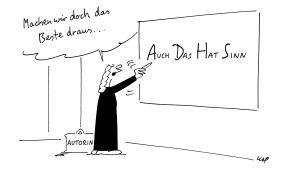 Machen wir doch das
Beste draus...
AUCH DAS HAT SINN
AUTORIN